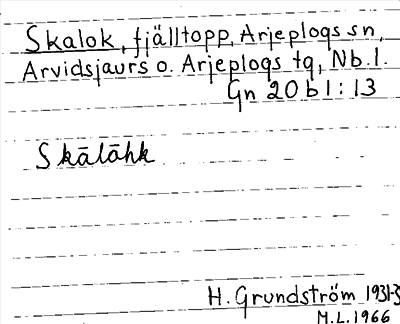 Skalok, fjälltopp, Arjeplogs sn,
Arvidsjaurs o. Arjeplogs tg, Nb.l.
Gn 20 b l : 13
Skālāhk
H. Grundström 1931-3
M.L. 1966